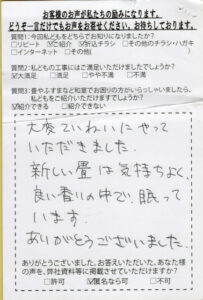 お客様のお声が私たちの励みになります。
どうぞ一言だけでもお声をお寄せください。お待ちしております。
質問1:今回私どもをどちらでお知りになりましたか?
□リピート ☑ご紹介 ☑折込チラシ □その他のチラシ・ハガキ
□インターネット □その他(
質問2:私どもの工事にはご満足いただけましたでしょうか?
☑大満足 □満足 □やや不満 □不満
質問3:畳やふすまなど和室でお困りの方がいらっしゃいましたら、
私どもをご紹介いただけますでしょうか?
☑紹介できる □紹介できない
大変ていねいにやって
いただきました。
新しい畳は気持ちよく
良い香りの中で、眠って
います。
ありがとうございました。
ありがとうございました。お答えいただいた、あなた様
の声を、弊社資料等に掲載させていただけますか?
□許可 ☑匿名なら可 □不可